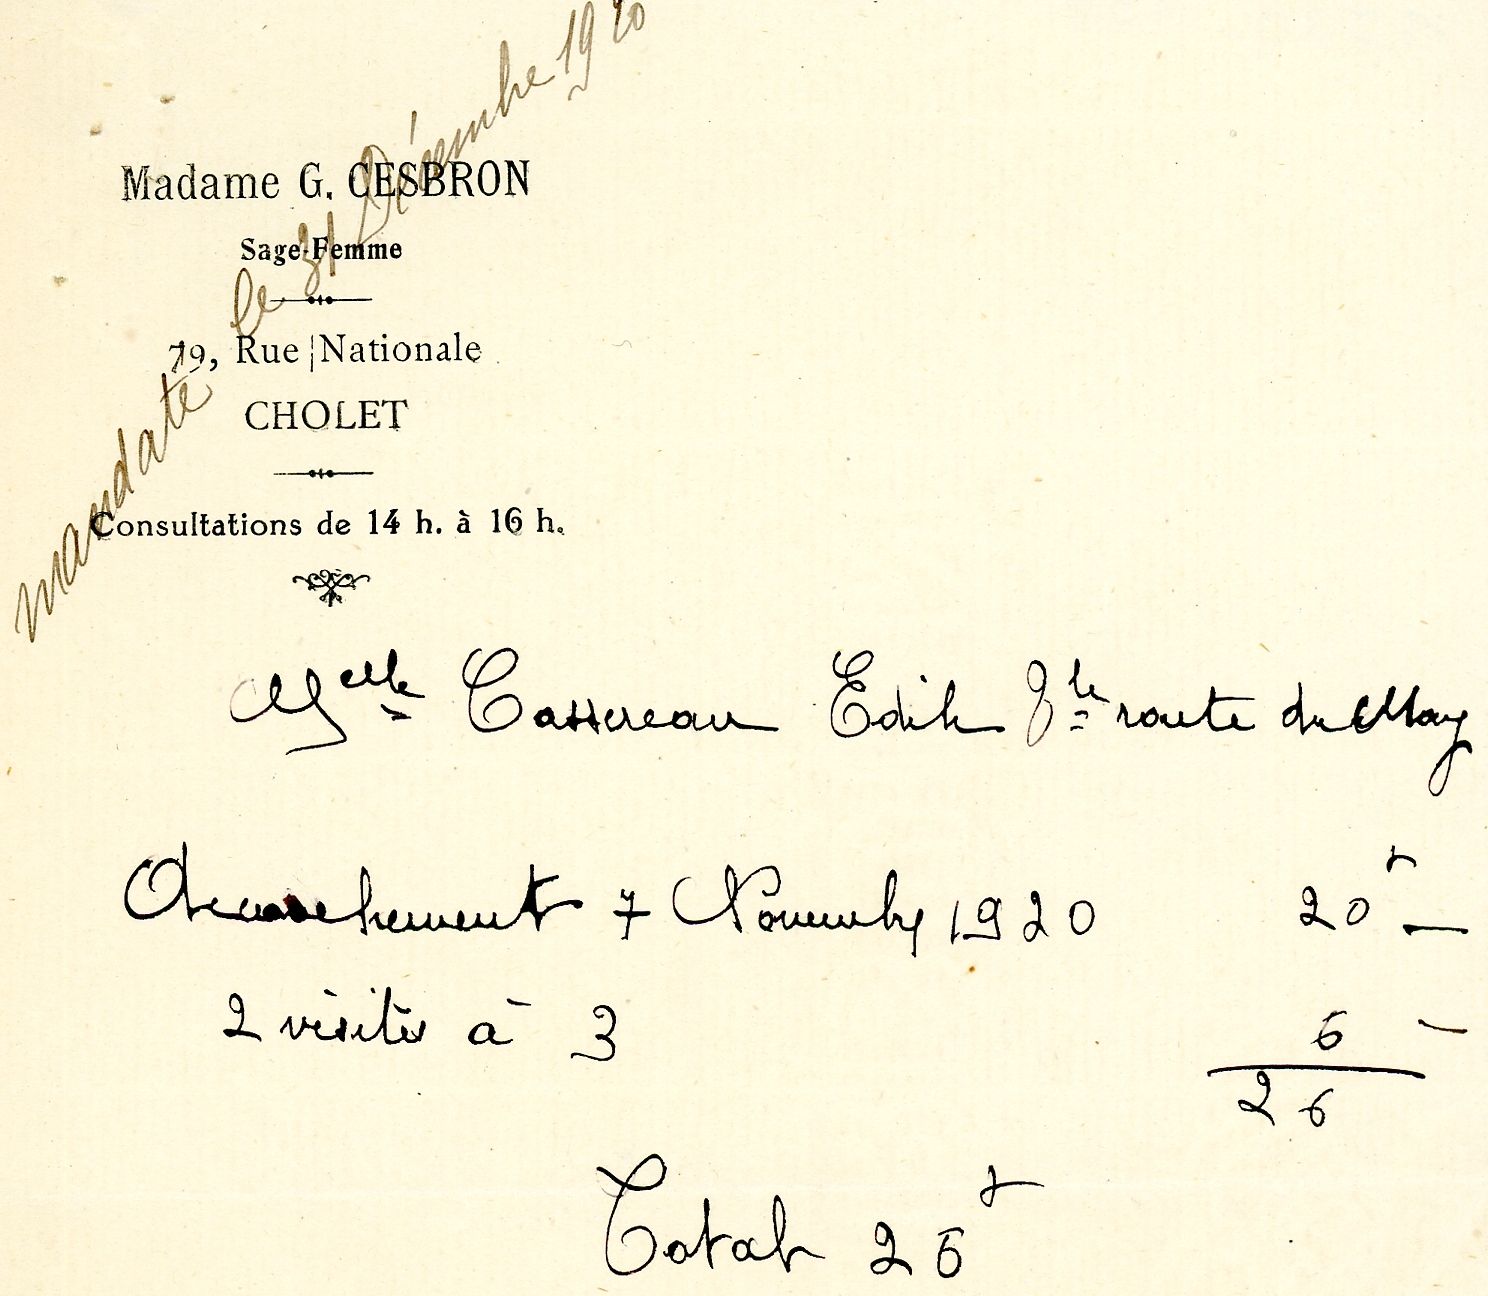 mandaté le 31 Décembre 1920
Madame G. CESBRON
Sage-Femme
79, Rue Nationale
CHOLET
Consultations de 14 h. à 16 h.
Melle Cassereau Edith Fle route du May
Accouchement 7 Novembre 1920 20 f —
2 visites à 3 6 —
26
Total 26 f